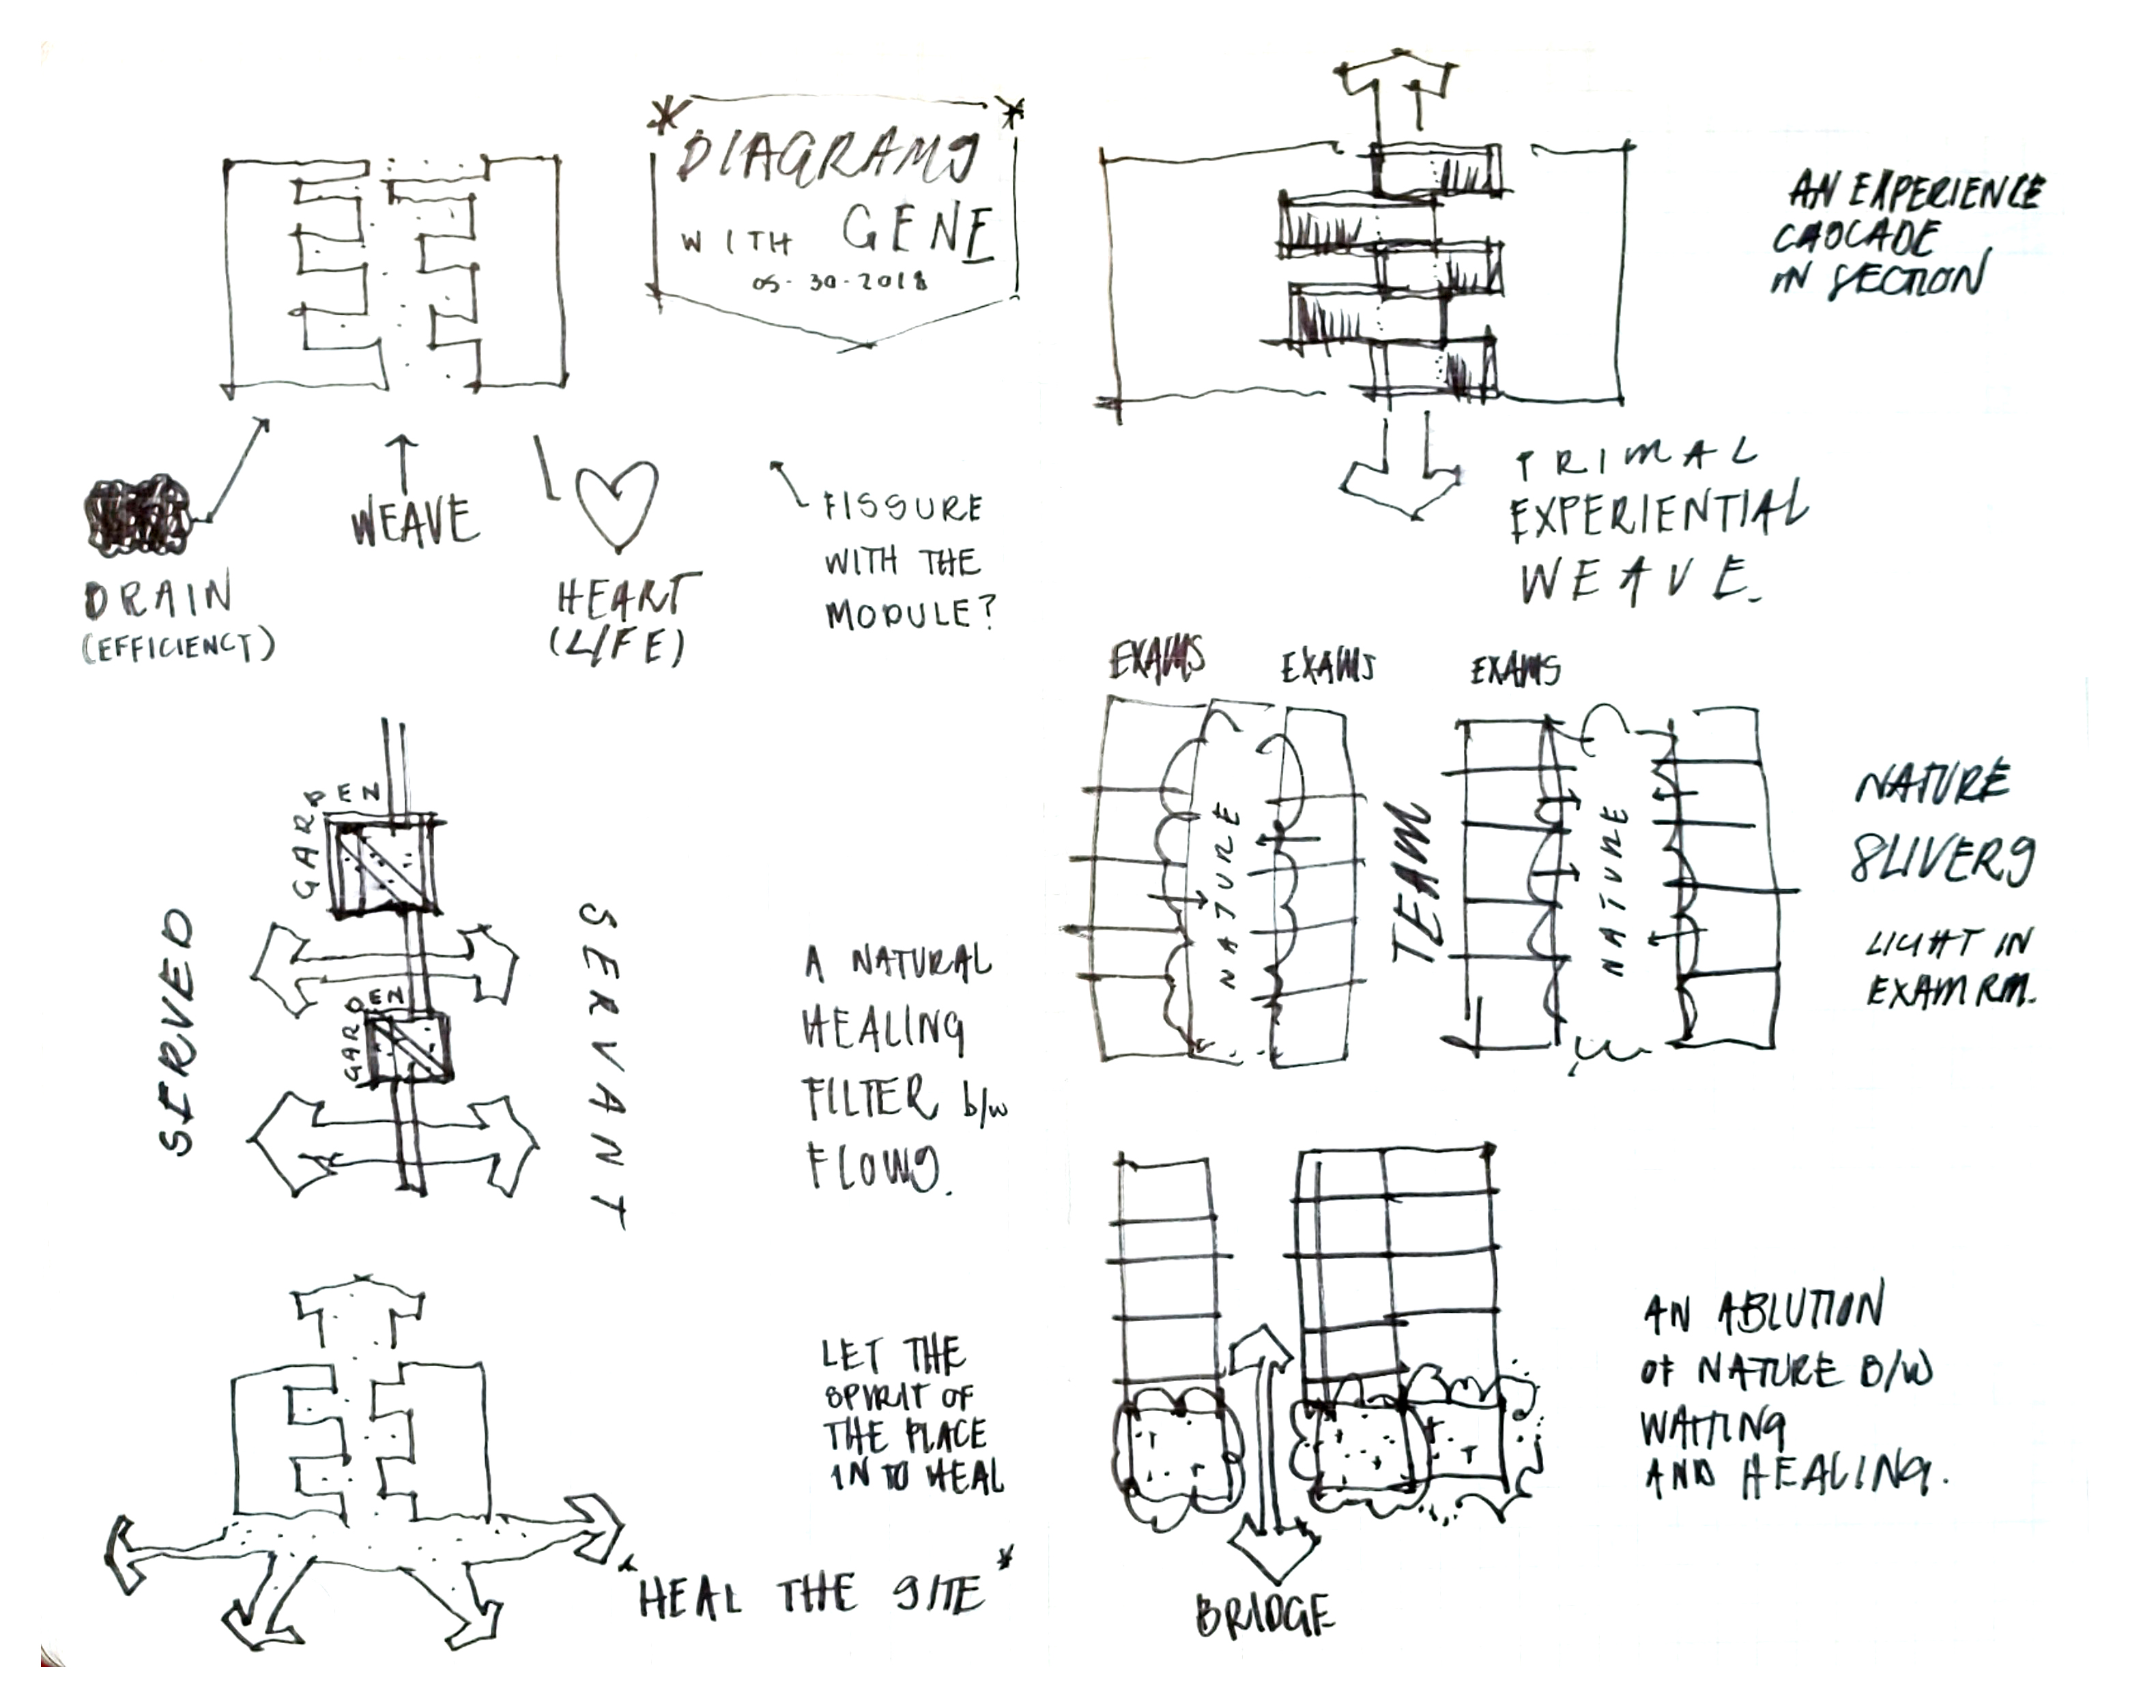 DIAGRAMS
WITH GENE
05-30-2018
WEAVE
BRAIN
(EFFICIENCY)
HEART
(LIFE)
FISSURE
WITH THE
MODULE?
AN EXPERIENCE
CASCADE
IN SECTION
PRIMAL
EXPERIENTIAL
WEAVE.
GARDEN
SERVED
SERVANT
GARDEN
A NATURAL
HEALING
FILTER b/w
FLOWS.
EXAMS EXAMS EXAMS
NATURE
TEAM
NATURE
NATURE
SLIVERS
LIGHT IN
EXAM RM.
LET THE
SPIRIT OF
THE PLACE
IN TO HEAL
*HEAL THE SITE*
AN ABLUTION
OF NATURE B/W
WAITING
AND HEALING.
BRIDGE